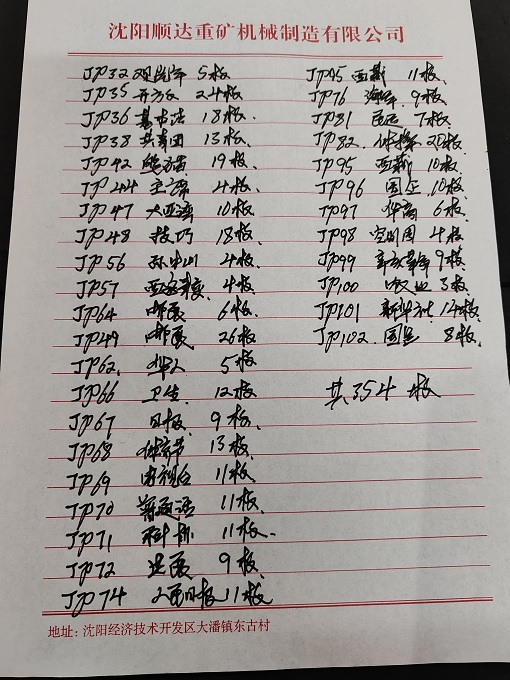 沈阳顺达重矿机械制造有限公司
JP32 观光年 5板
JP35 开放 24板
JP36 基本法 18板
JP38 共青团 13板
JP42 熊猫 19板
JP44 主席 4板
JP47 大亚湾 10板
JP48 技巧 18板
JP56 孙中山 4板
JP57 4板
JP64 邮展 6板
JP49 邮展 26板
JP62 伤人 5板
JP66 卫生 12板
JP67 日报 9板
JP68 体育节 13板
JP69 电视台 11板
JP70 普通话 11板
JP71 科协 11板
JP72 集展 9板
JP74 人民日报 11板
JP75 西藏 11板
JP76 海军 9板
JP81 民运 7板
JP82 体操 20板
JP95 西藏 10板
JP96 国企 10板
JP97 华商 6板
JP98 空间周 4板
JP99 辛亥革命 9板
JP100 牧业 3板
JP101 新华社 14板
JP102 国土 8板
共354板
地址：沈阳经济技术开发区大潘镇东古村